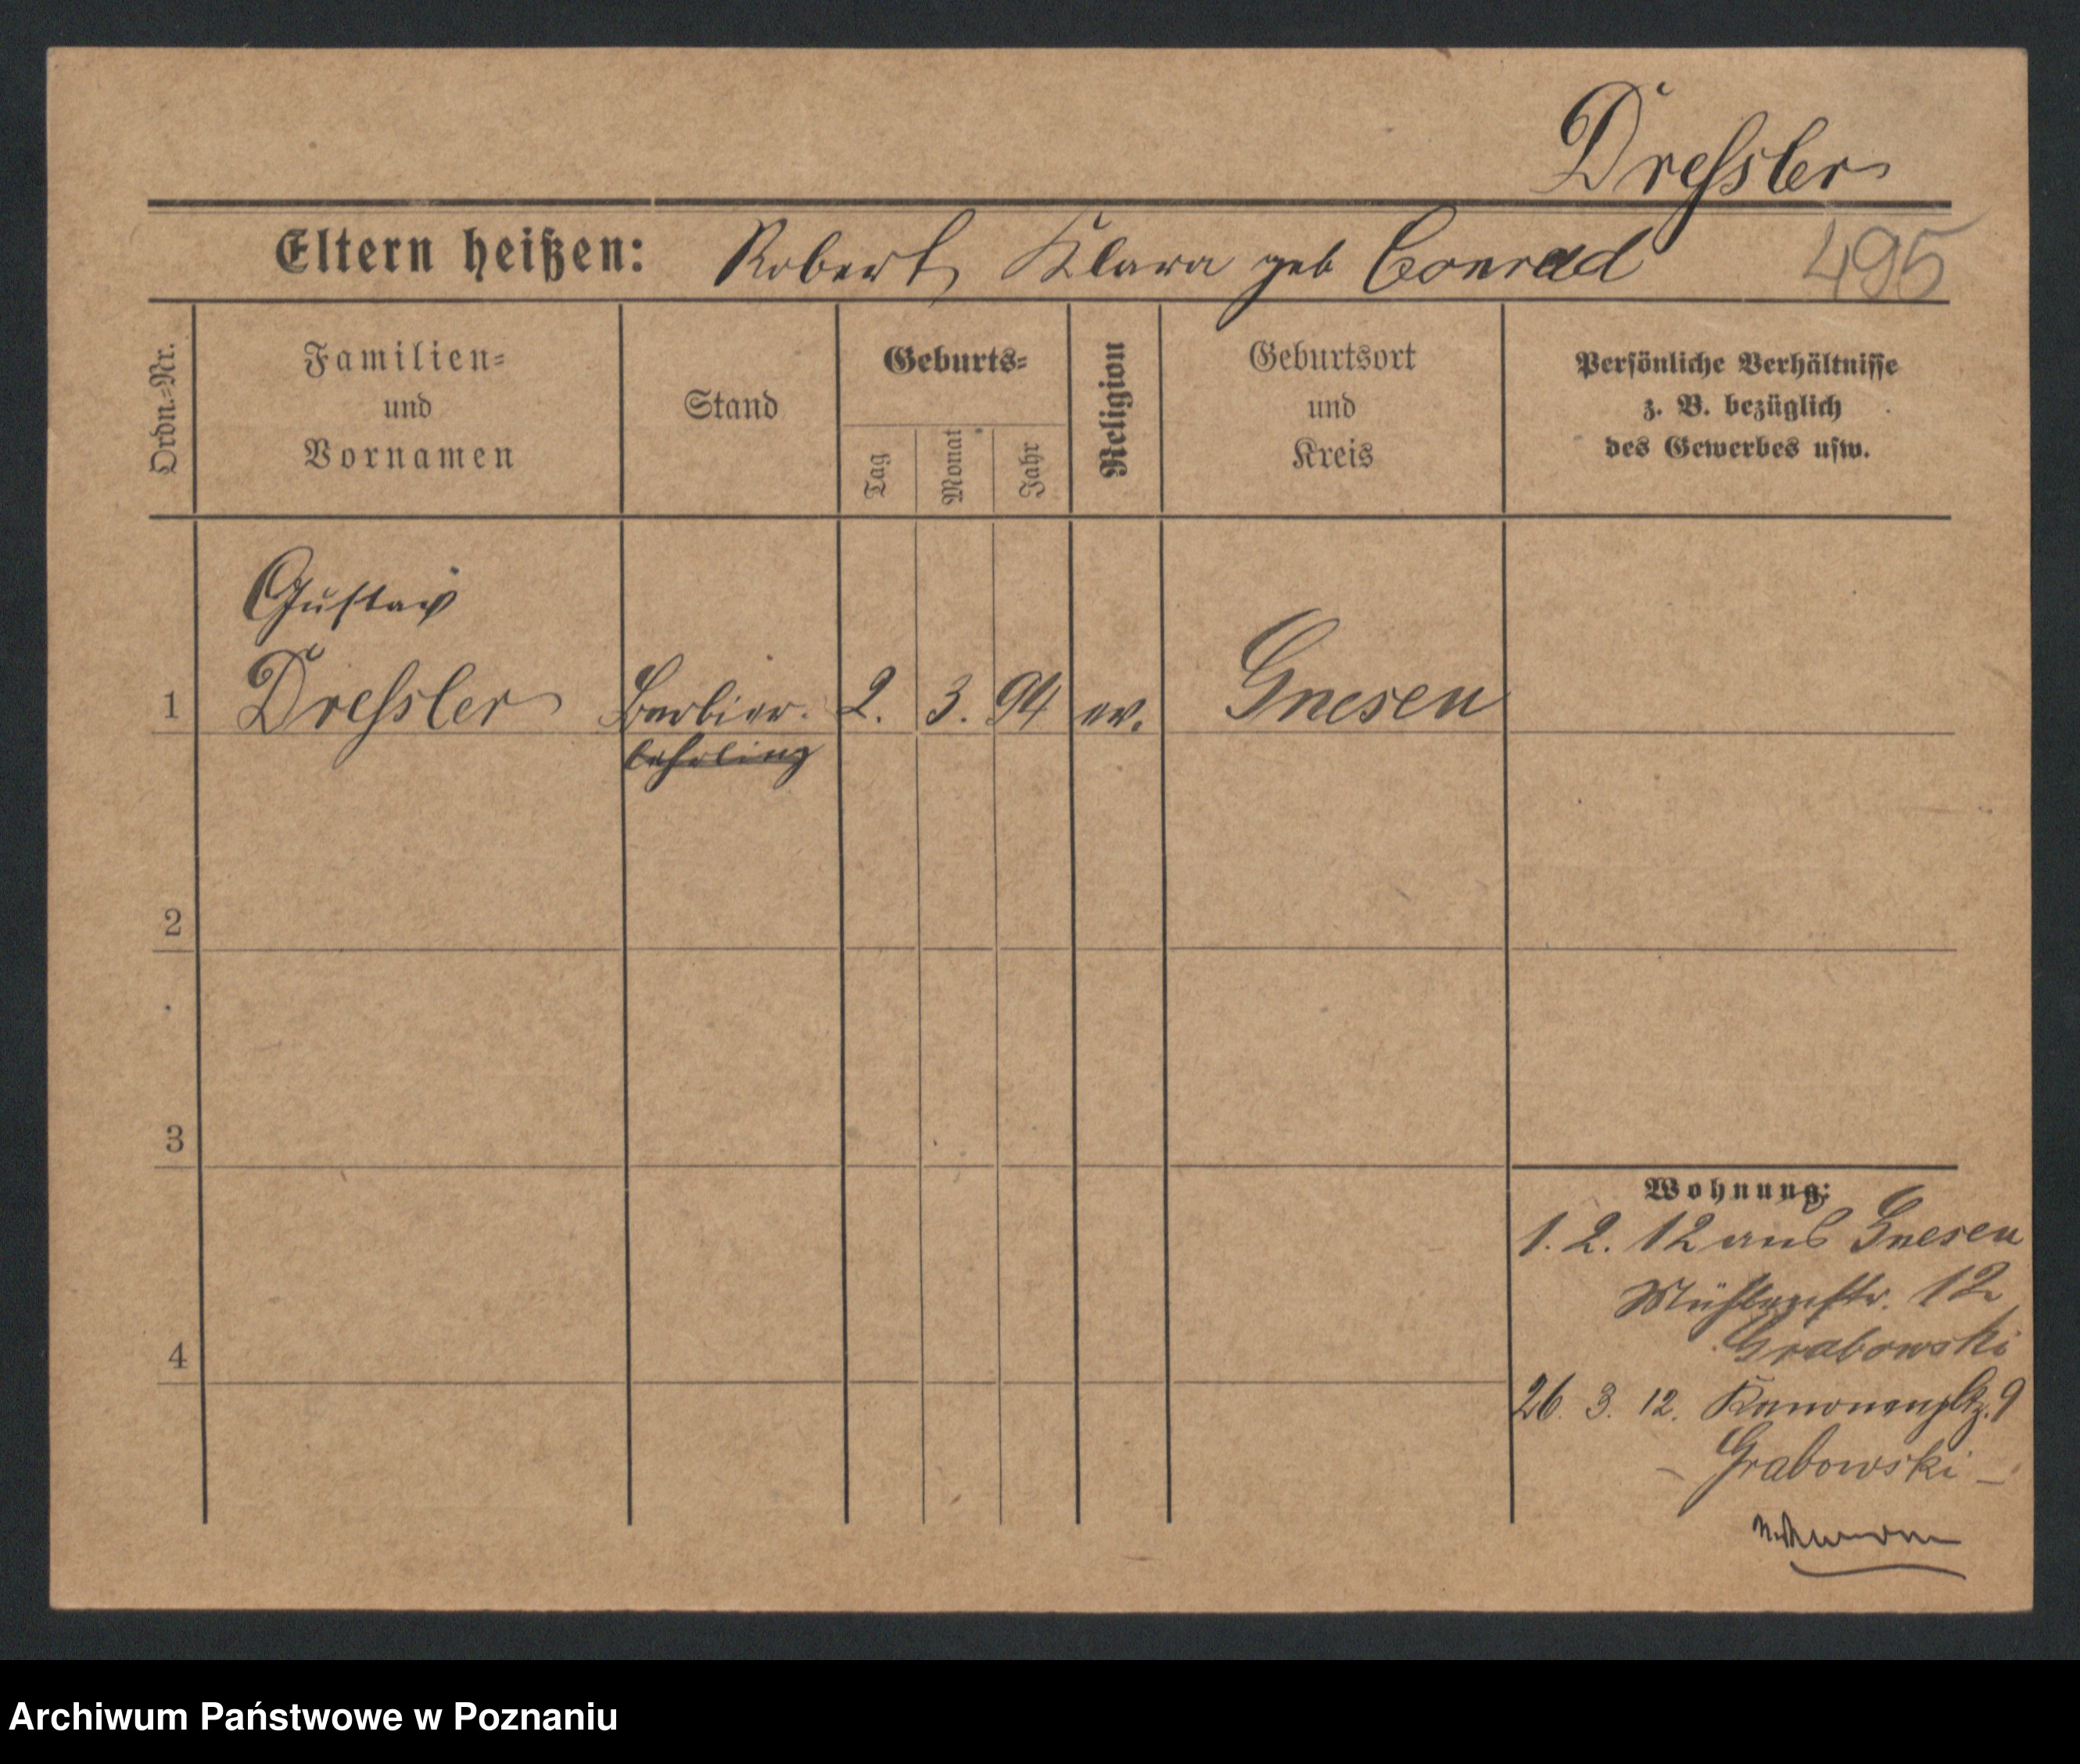 Dreſsler
Eltern heißen: Robert, Klara geb Conrad 495
Ordn.=Nr.
Familien=
und
Vornamen
Stand
Geburts=
Tag
Monat
Jahr
Religion
Geburtsort
und
Kreis
Perſönliche Verhältniſſe
z. B. bezüglich
des Gewerbes uſw.
Gustav
1 Dreſsler Barbier. 2. 3. 94 ev. Gnesen
lehrling
2
3
4
Wohnung:
1. 2. 12 aus Gnesen
Mühlenstr. 12
Grabowski
26. 3. 12. Kanonenpltz. 9
– Grabowski –
Archiwum Państwowe w Poznaniu